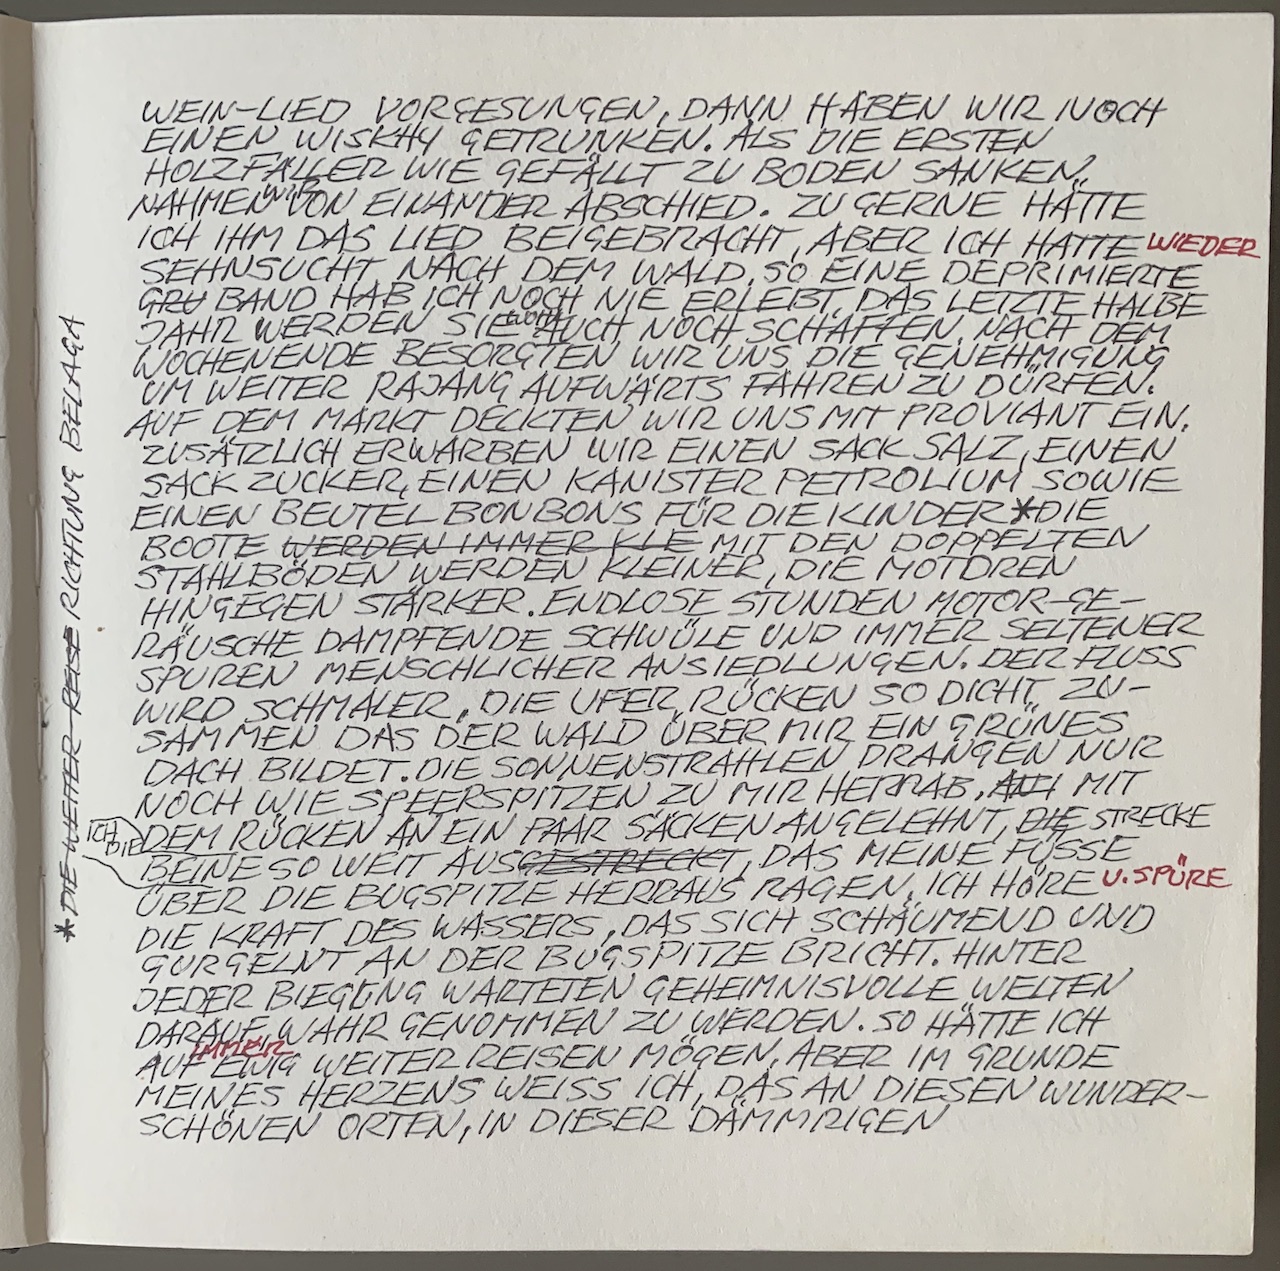 WEIN-LIED VORGESUNGEN, DANN HABEN WIR NOCH
EINEN WISKHY GETRUNKEN. ALS DIE ERSTEN
HOLZFÄLLER WIE GEFÄLLT ZU BODEN SANKEN,
NAHMEN WIR VON EINANDER ABSCHIED. ZU GERNE HÄTTE
ICH IHM DAS LIED BEIGEBRACHT, ABER ICH HATTE WIEDER
SEHNSUCHT NACH DEM WALD. SO EINE DEPRIMIERTE
GRU BAND HAB ICH NOCH NIE ERLEBT, DAS LETZTE HALBE
JAHR WERDEN SIE WOHL AUCH NOCH SCHAFFEN. NACH DEM
WOCHENENDE BESORGTEN WIR UNS DIE GENEHMIGUNG
UM WEITER RAJANG AUFWÄRTS FAHREN ZU DÜRFEN.
AUF DEM MARKT DECKTEN WIR UNS MIT PROVIANT EIN.
ZUSÄTZLICH ERWARBEN WIR EINEN SACK SALZ, EINEN
SACK ZUCKER, EINEN KANISTER PETROLIUM SOWIE
EINEN BEUTEL BONBONS FÜR DIE KINDER * DIE
BOOTE WERDEN IMMER KLE MIT DEN DOPPELTEN
STAHLBÖDEN WERDEN KLEINER, DIE MOTOREN
HINGEGEN STÄRKER. ENDLOSE STUNDEN MOTOR-GE-
RÄUSCHE DAMPFENDE SCHWÜLE UND IMMER SELTENER
SPUREN MENSCHLICHER ANSIEDLUNGEN. DER FLUSS
WIRD SCHMALER, DIE UFER RÜCKEN SO DICHT ZU-
SAMMEN DAS DER WALD ÜBER MIR EIN GRÜNES
DACH BILDET. DIE SONNENSTRAHLEN DRANGEN NUR
NOCH WIE SPEERSPITZEN ZU MIR HERRAB, MIT
DEM RÜCKEN AN EIN PAAR SÄCKEN ANGELEHNT, DIE STRECKE
ICH DIE
BEINE SO WEIT AUSGESTRECKT, DAS MEINE FÜSSE
ÜBER DIE BUGSPITZE HERRAUS RAGEN, ICH HÖRE U. SPÜRE
DIE KRAFT DES WASSERS, DAS SICH SCHÄUMEND UND
GURGELNT AN DER BUGSPITZE BRICHT. HINTER
JEDER BIEGUNG WARTETEN GEHEIMNISVOLLE WELTEN
DARAUF, WAHR GENOMMEN ZU WERDEN. SO HÄTTE ICH
AUF EWIG IMMER WEITER REISEN MÖGEN, ABER IM GRUNDE
MEINES HERZENS WEISS ICH, DAS AN DIESEN WUNDER-
SCHÖNEN ORTEN, IN DIESER DÄMMRIGEN
* DIE WEITER REISE RICHTUNG BELAGA